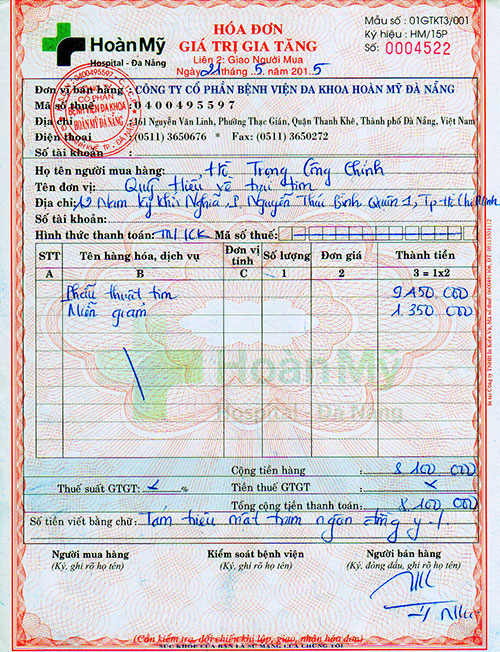 HoànMỹ
Hospital - Đà Nẵng
HÓA ĐƠN
GIÁ TRỊ GIA TĂNG
Liên 2: Giao Người Mua
Ngày 21 tháng 5 năm 2015
Mẫu số : 01GTKT3/001
Ký hiệu : HM/15P
Số: 0004522
Đơn vị bán hàng : CÔNG TY CỔ PHẦN BỆNH VIỆN ĐA KHOA HOÀN MỸ ĐÀ NẴNG
Mã số thuế : 0400495597
Địa chỉ : 161 Nguyễn Văn Linh, Phường Thạc Gián, Quận Thanh Khê, Thành phố Đà Nẵng, Việt Nam
Điện thoại : (0511) 3650676 * Fax: (0511) 3650272
Số tài khoản :
CỔ PHẦN
BỆNH VIỆN ĐA KHOA
HOÀN MỸ ĐÀ NẴNG
Họ tên người mua hàng: Hồ Trọng Công Chính
Tên đơn vị: Quỹ
Địa chỉ: Nam Kỳ Khởi Nghĩa P. Nguyễn Thái Bình Quận 1, Tp Hồ Chí Minh
Số tài khoản:
Hình thức thanh toán: TM/CK Mã số thuế:
STT Tên hàng hóa, dịch vụ Đơn vị tính Số lượng Đơn giá Thành tiền
A B C 1 2 3 = 1x2
Phẫu thuật tim 9 450 000
Miễn giảm 1 350 000
HoànMỹ
Hospital - Đà Nẵng
Cộng tiền hàng : 8 100 000
Thuế suất GTGT: % Tiền thuế GTGT :
Tổng cộng tiền thanh toán: 8 100 000
Số tiền viết bằng chữ: Tám triệu một trăm ngàn đồng y
Người mua hàng Kiểm soát bệnh viện Người bán hàng
(Ký, ghi rõ họ tên) (Ký, ghi rõ họ tên) (Ký, đóng dấu, ghi rõ họ tên)
(Cần kiểm tra, đối chiếu khi lập, giao, nhận hóa đơn)
SỨC KHỎE CỦA BẠN LÀ SỨ MẠNG CỦA CHÚNG TÔI